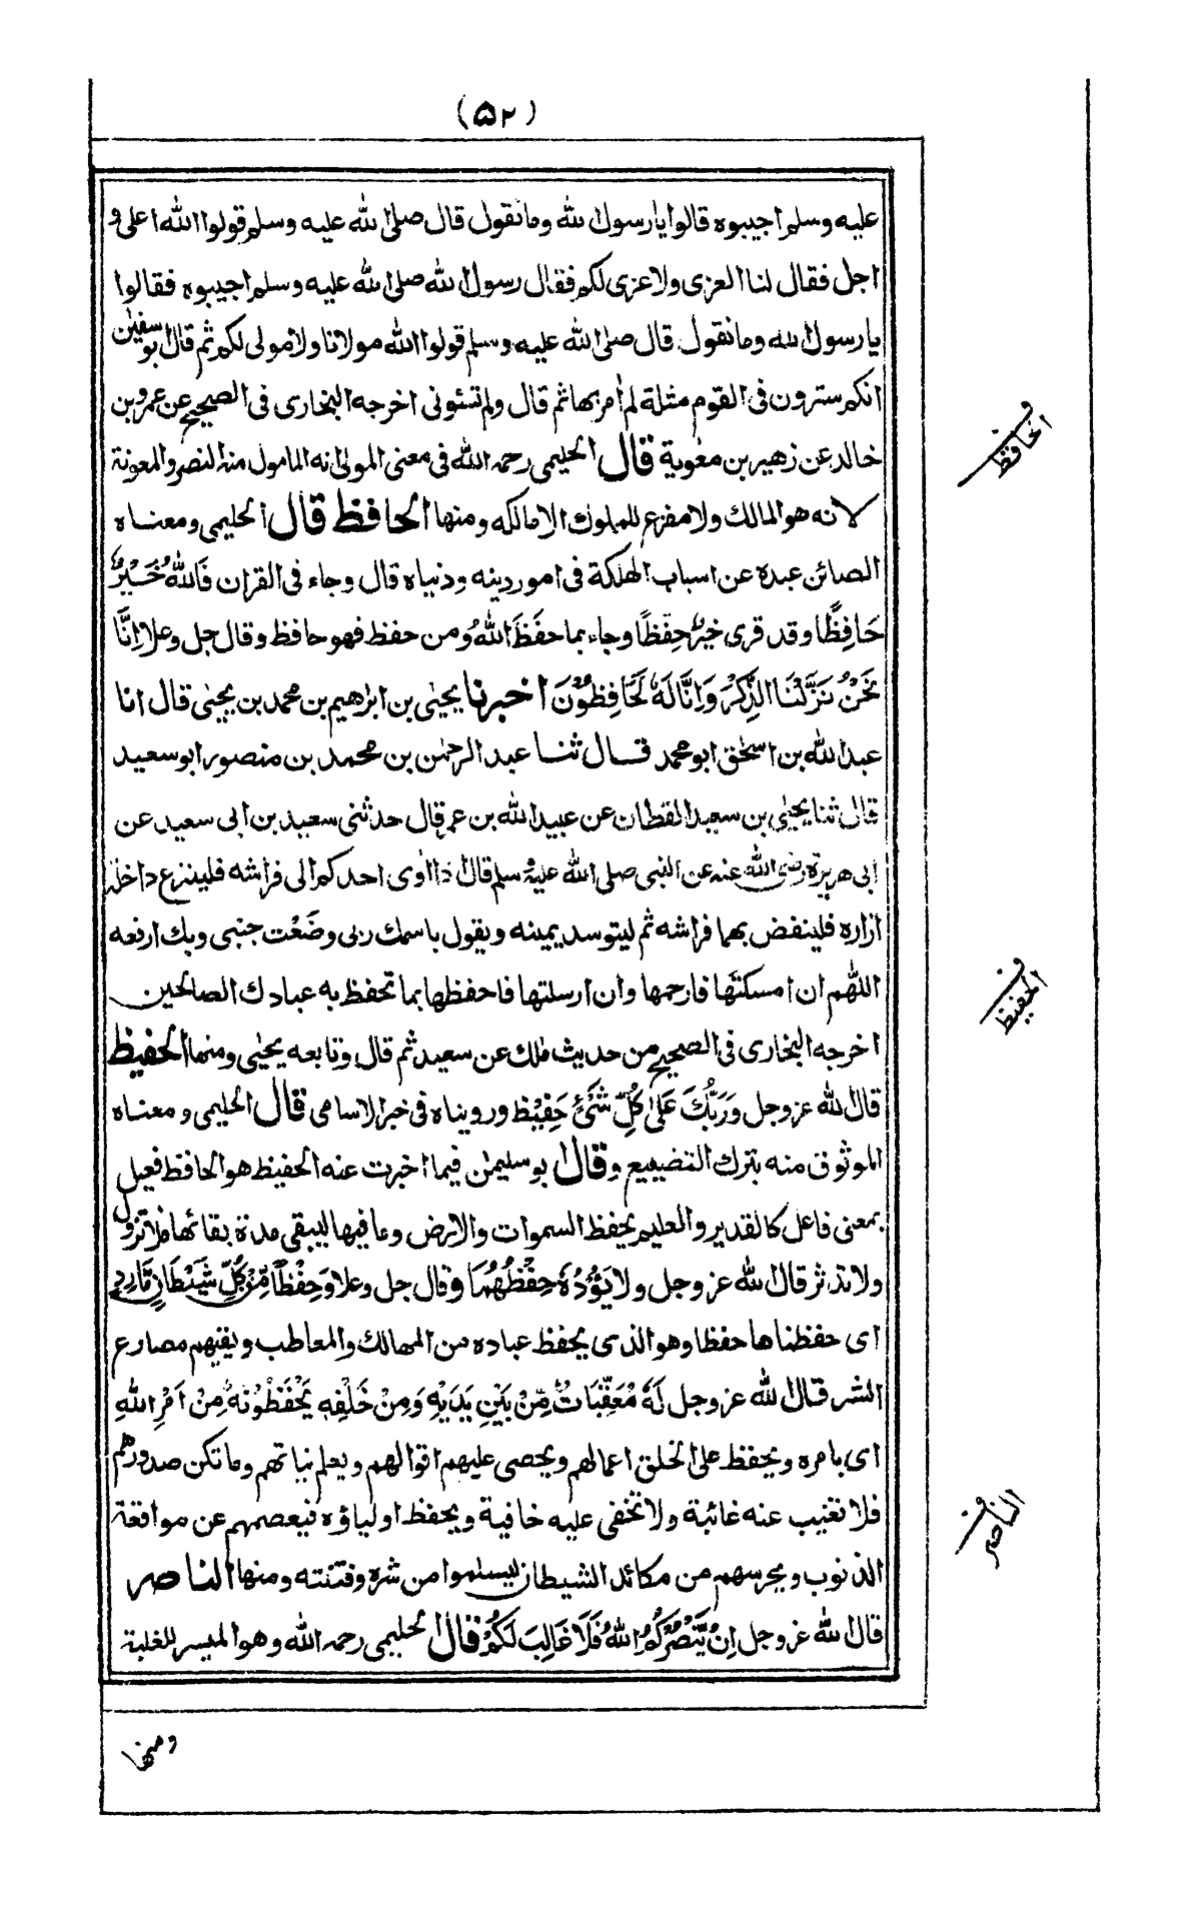 (۵۲)
عليه وسلم اجيبوه قالوا يا رسول الله وما نقول قال صلى الله عليه وسلم قولوا الله اعلى و
اجل فقال لنا العزى ولا عزى لكم فقال رسول الله صلى الله عليه وسلم اجيبوه فقالوا
يا رسول الله وما نقول قال صلى الله عليه وسلم قولوا الله مولانا ولا مولى لكم ثم قال ابوسفيٰن
انكم سترون فى القوم مثلة لم اٰمر بها ثم قال ولم تسئونى اخرجه البخارى فى الصحيح عن عمرو بن
خالد عن زهير بن معٰوية قال الحليمى رحمه الله فى معنى المولى انه المامول منه النصر والمعونة
لانه هو المالك ولا مفزع للملوك الا مالكه ومنها الحافظ قال الحليمى ومعناه
الصائن عبده عن اسباب الهلكة فى امور دينه ودنياه قال وجاء فى القران فَاللهُ خَيْرٌ
حَافِظًا وقد قرى خيرٌ حِفْظًا وجاء بما حفَظَ اللهُ ومن حفظ فهو حافظ وقال جل وعلا اِنَّا
نَحْنُ نَزَّلْنَا الذِّكْرَ وَاِنَّا لَهٗ لَحَافِظُوْنَ اخبرنا يحيٰى بن ابرٰهيم بن محمد بن يحيٰى قال انا
عبد الله بن اسحٰق ابو محمد قال ثنا عبد الرحمٰن بن محمد بن منصور ابو سعيد
قال ثنا يحيٰى بن سعيد القطان عن عبيد الله بن عمر قال حدثنى سعيد بن ابى سعيد عن
ابى هريرة رضى الله عنه عن النبى صلى الله عليه وسلم قال اذا اٰوى احدكم الى فراشه فلينزع داخلة
ازاره فلينفض بها فراشه ثم ليتوسد يمينه ويقول باسمك ربى وضَعْت جنبى وبك ارفعه
اللهم ان امسكتها فارحمها وان ارسلتها فاحفظها بما تحفظ به عبادك الصالحين
اخرجه البخارى فى الصحيح من حديث مٰلك عن سعيد ثم قال وتابعه يحيٰى ومنها الحفيظ
قال الله عز وجل وَرَبُّكَ عَلٰى كُلِّ شَىْءٍ حَفِيْظ ورويناه فى خبر الاسامى قال الحليمى ومعناه
الموثوق منه بترك التضييع وقال ابو سليمٰن فيما اخبرت عنه الحفيظ هو الحافظ فعيل
بمعنى فاعل كالقدير والعليم يحفظ السموات والارض وما فيها ليبقى مدة بقائها فلا تزول
ولا تدثر قال الله عز وجل ولا يَؤُدُهٗ حِفْظُهُمَا وقال جل وعلا وَحِفْظًا مِّنْ كُلِّ شَيْطَانٍ مَّارِدٍ
اى حفظناها حفظا وهو الذى يحفظ عباده من المهالك والمعاطب ويقيهم مصارع
الشر قال الله عز وجل لَهٗ مُعَقِّبَاتٌ مِّنْ بَيْنِ يَدَيْهِ وَمِنْ خَلْفِهٖ يَحْفَظُوْنَهٗ مِنْ اَمْرِ اللهِ
اى بامره ويحفظ على الخلق اعمالهم ويحصى عليهم اقوالهم ويعلم نياتهم وما تكن صدورهم
فلا تغيب عنه غائبة ولا تخفى عليه خافية ويحفظ اولياؤه فيعصمهم عن مواقعة
الذنوب ويحرسهم من مكائد الشيطان ليسلموا من شره وفتنته ومنها الناصر
قال الله عز وجل اِنْ يَّنْصُرْكُمُ اللهُ فَلَا غَالِبَ لَكُمْ قال الحليمى رحمه الله وهو الميسر للغلبة
ومنها
الحافظ
الحفيظ
الناصر